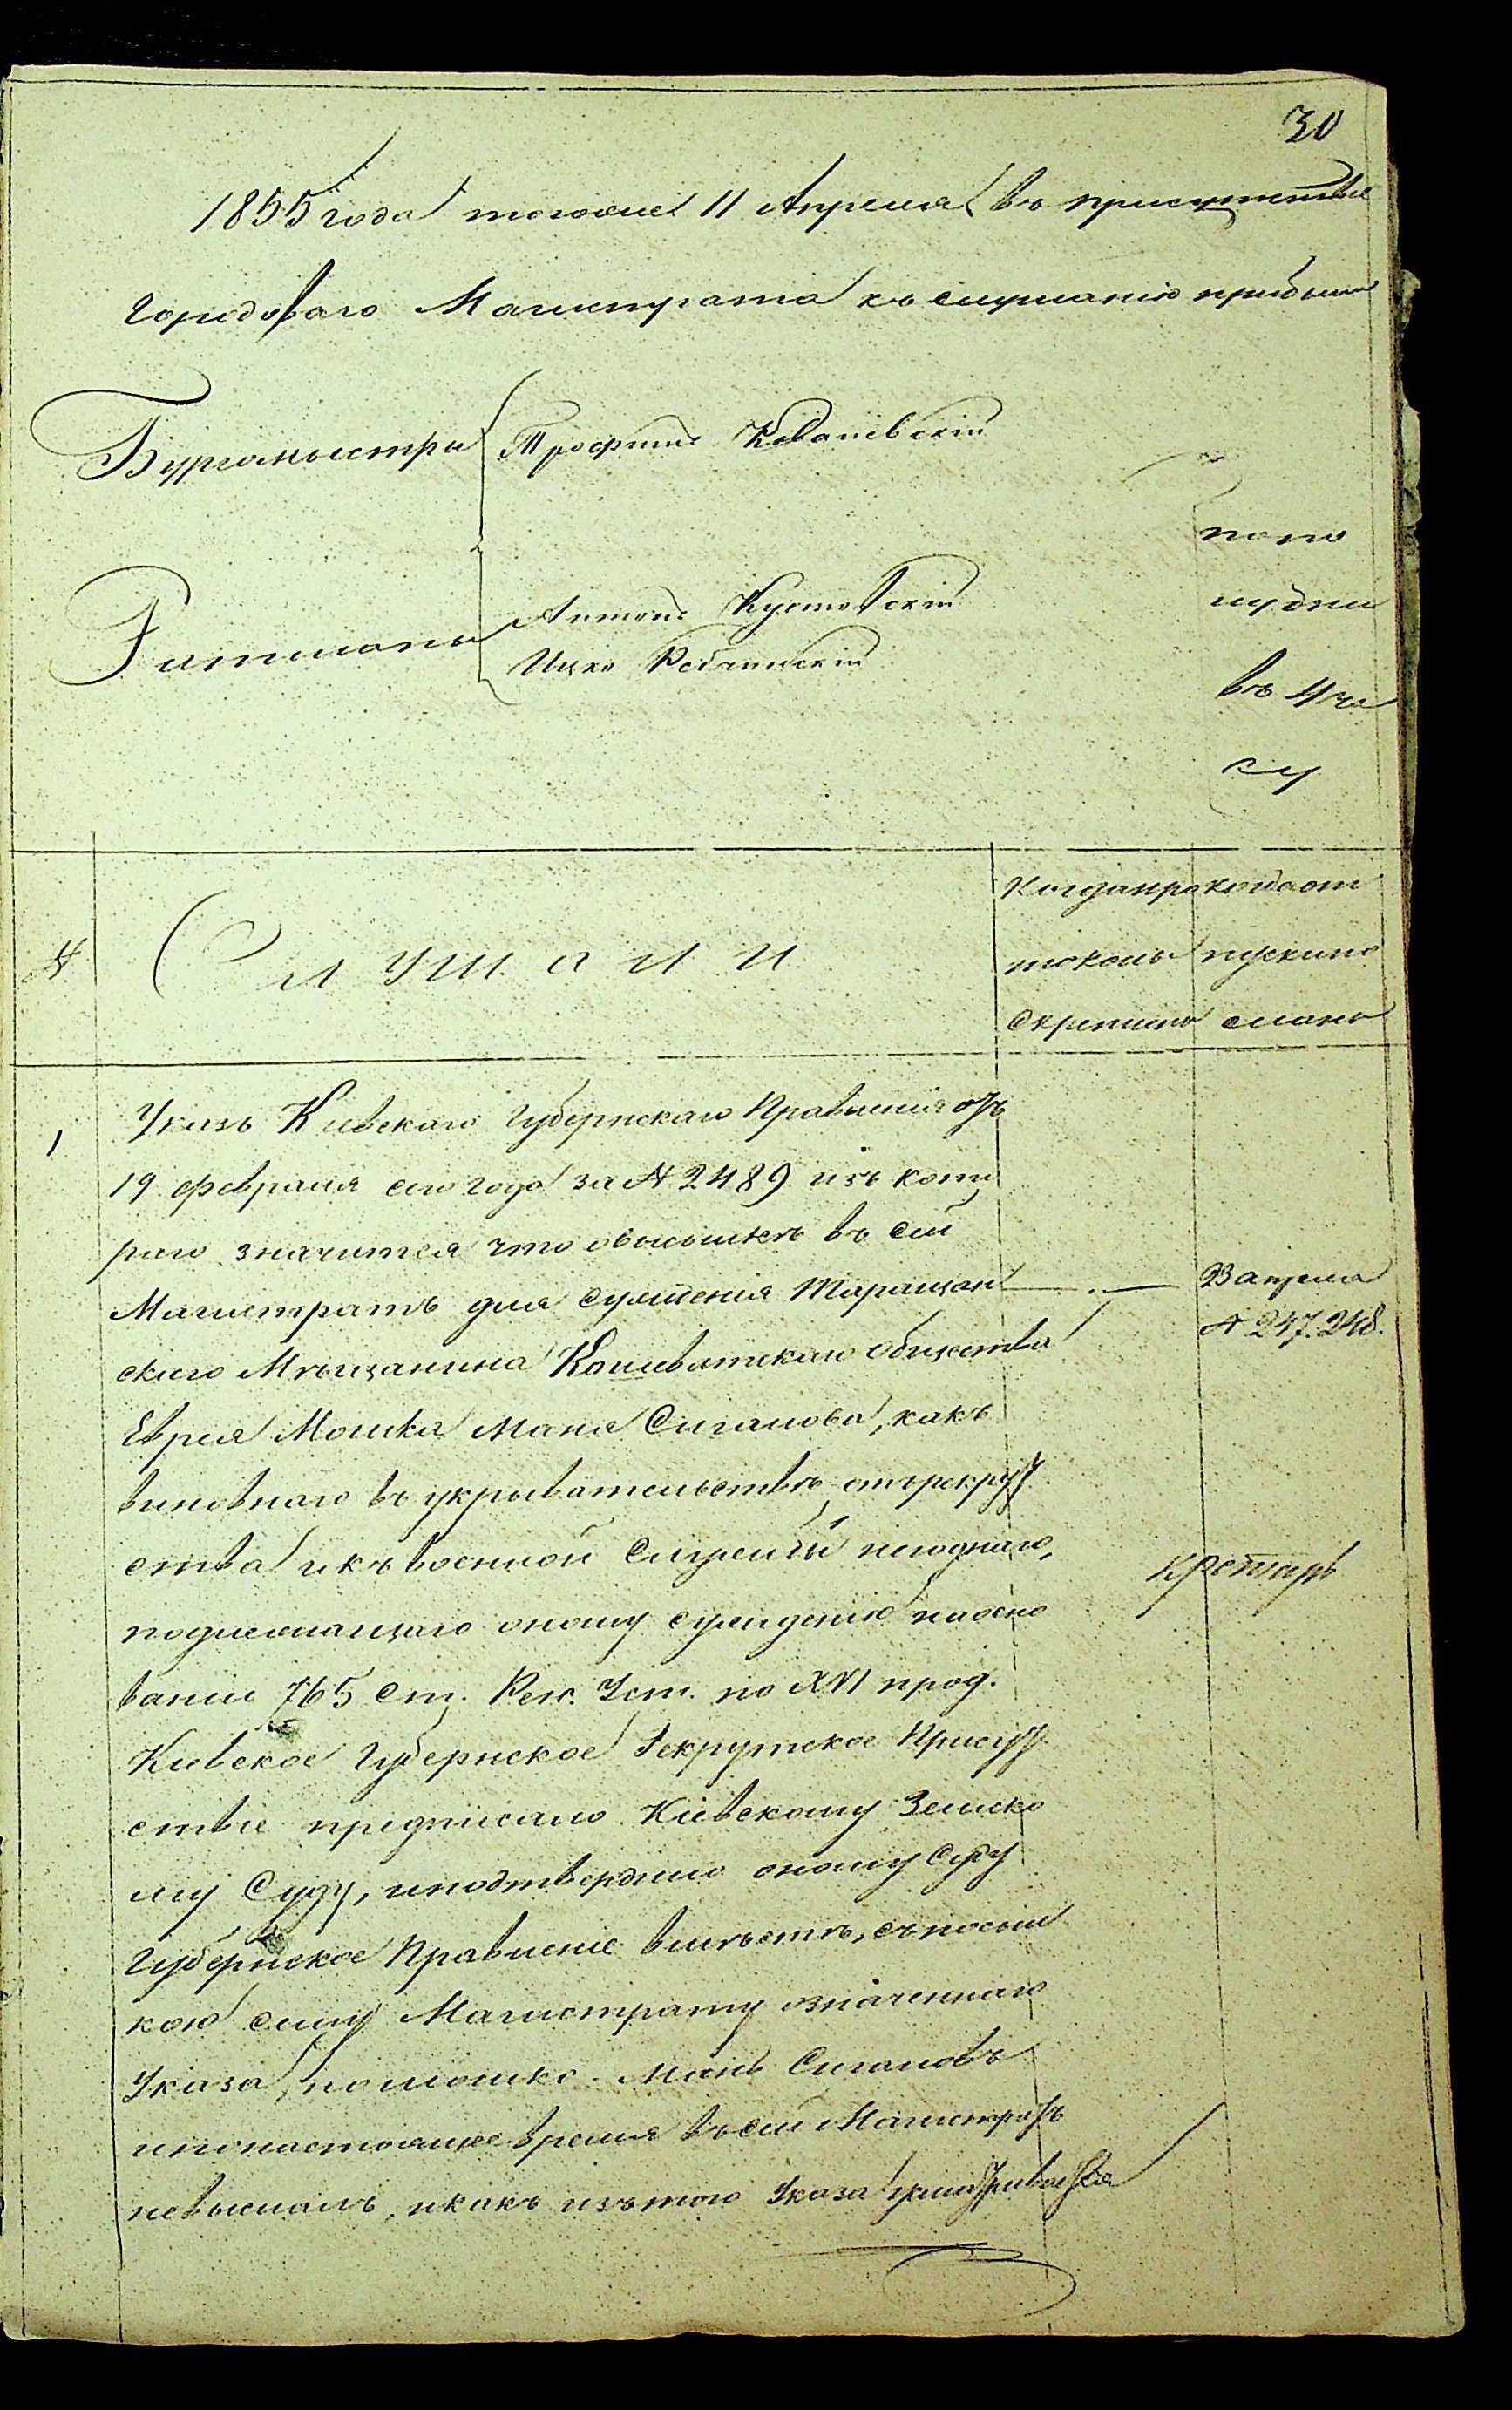 30
1855 года тогоже 11 Апреля въ присутствіе
Городоваго Магистрата къ слушанію прибыли
Бургомыстры Трофимъ
Ратманы Антонъ Кустовскій
Ицко
попо
лудни
въ 4 ча
су
№ Слушали
Когда про когда от
токолъ пущено
скрепленъ
1
Указъ Кіевскаго Губернскаго Правленія отъ
19 февраля сего года за № 2489 изъ кото
раго значится что овысылкѣ въ сей
Магистратъ для сужденія Таращан
скаго Мѣщанина Кошеватскаго общества
Еврея Мошка Маня Сигалова, какъ
виновнаго въ укрывательствѣ отърекрут
ства икъ военной службѣ негоднаго,
подлежащаго оному сужденію наосно
ваніи 765 ст. Рек. Уст. по XVI прод.
Кіевское Губернское Рекрутское Присут
ствіе предписало Кіевскому Земско
му Суду, иподтвердило оному Суду
Губернское Правленіе вмѣстѣ, съпосыл
кою сему Магистрату означеннаго
Указа, но Мошко Мань Сигаловъ
ипонастоящее время въсей Магистратъ
невысланъ, икакъ изътого Указа усматривается
23 апреля
№ 247. 248.
кретарь